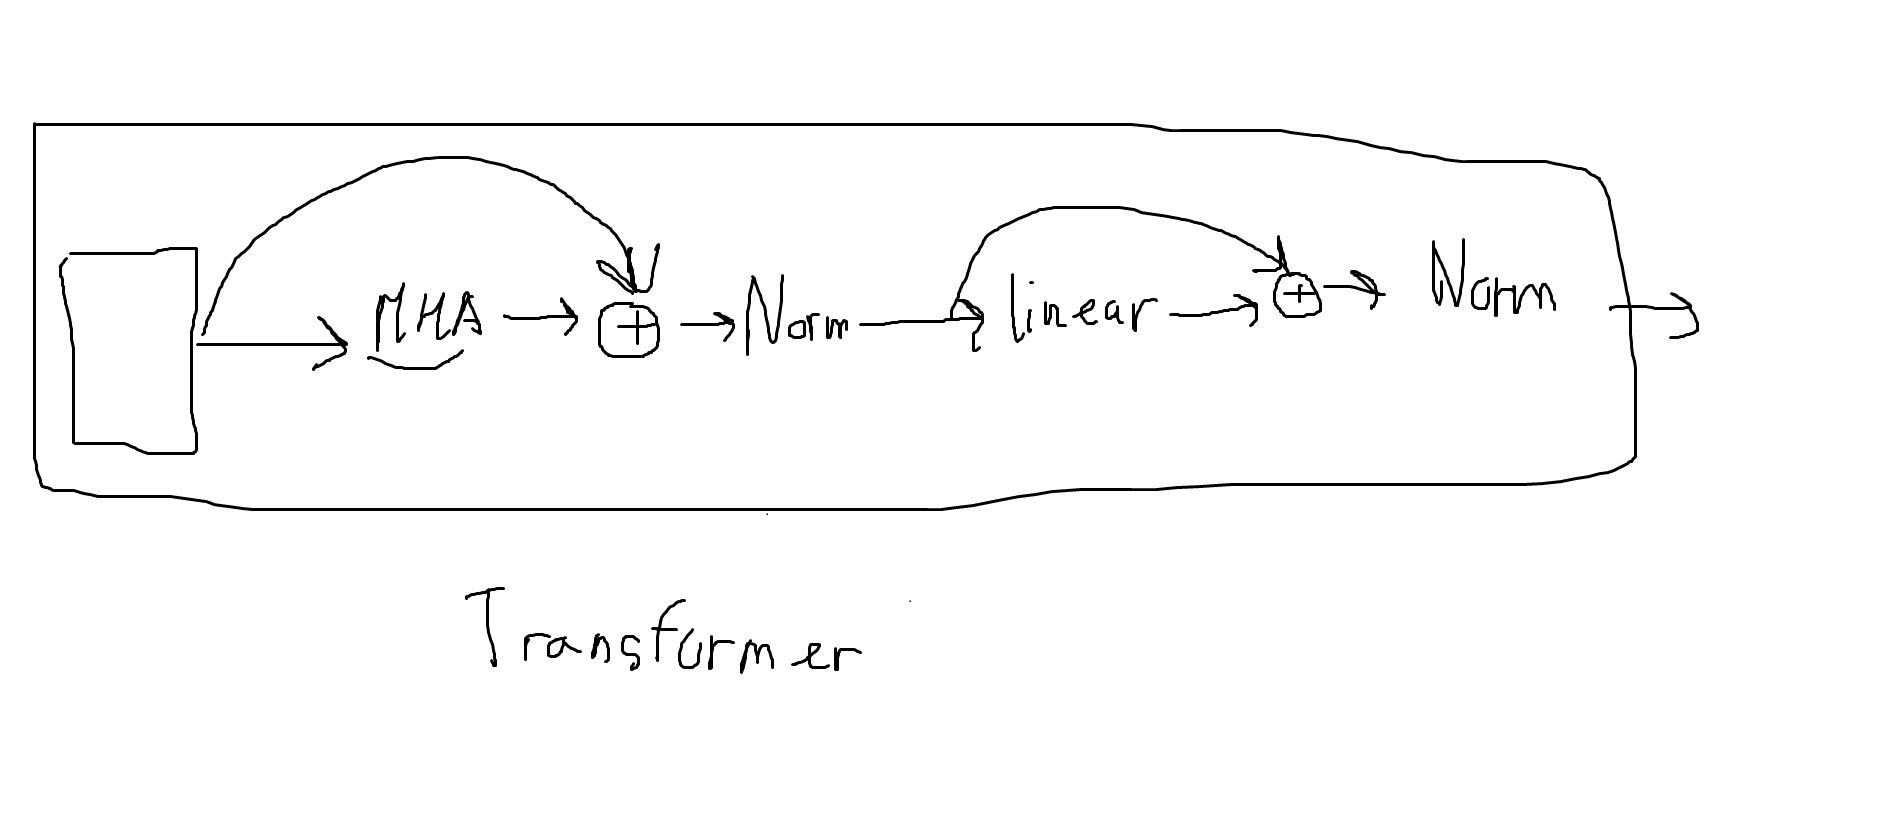 MHA → ⊕ → Norm → linear → ⊕ → Norm →
Transformer